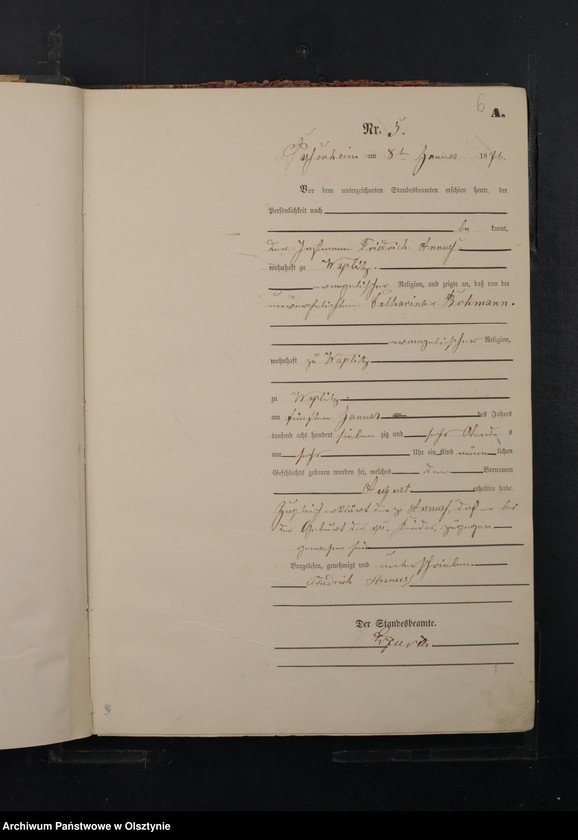 6
A.
Nr. 5.
Passenheim am 8ten Januar 1876.
Vor dem unterzeichneten Standesbeamten erschien heute, der
Persönlichkeit nach
be kannt,
der Friedrich
wohnhaft zu Waplitz
evangelischer Religion, und zeigte an, daß von der
unverehelichten Catharina
evangelischer Religion,
wohnhaft zu Waplitz
zu Waplitz
am fünften Januar des Jahres
tausend acht hundert sieben zig und sechs Abends
um sechs Uhr ein Kind männ lichen
Geschlechts geboren worden sei, welches den Vornamen
August erhalten habe.
Zugleich erklärt der daß er bei
der Geburt des Kindes zugegen
gewesen sei
Vorgelesen, genehmigt und unterschrieben
Friedrich
Der Standesbeamte.
Archiwum Państwowe w Olsztynie